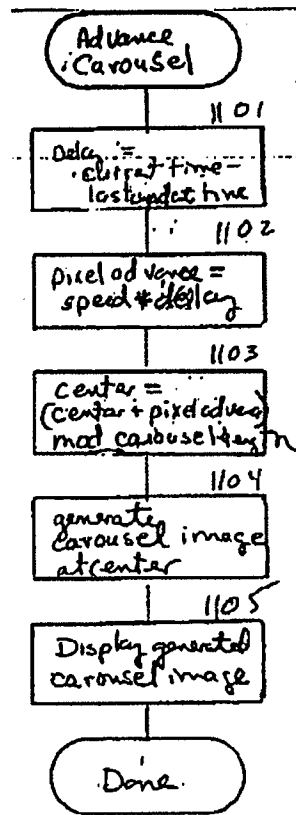 Advance
Carousel
1101
Delay :=
current time -
last update time
1102
pixel advance =
speed * delay
1103
center =
(center + pixel advance)
mod carousel length
1104
generate
carousel image
at center
1105
Display generated
carousel image
Done